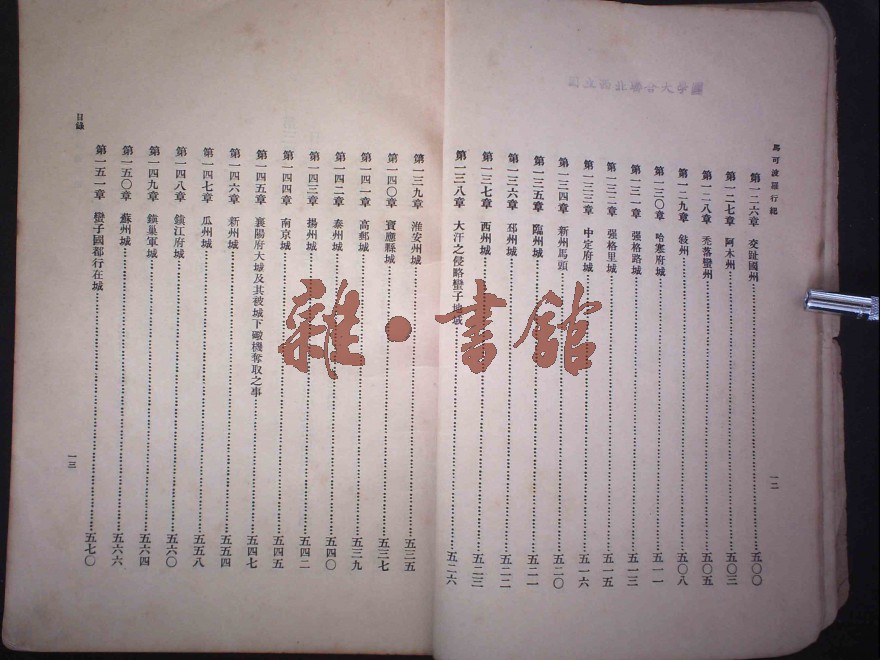 馬可波羅行紀
第一二六章 交趾國州 五〇〇
第一二七章 阿木州 五〇三
第一二八章 禿落蠻州 五〇五
第一二九章 敍州 五〇八
第一三〇章 哈寒府城 五一一
第一三一章 强格路城 五一三
第一三二章 强格里城 五一五
第一三三章 中定府城 五一六
第一三四章 新州馬頭 五二〇
第一三五章 臨州城 五二一
第一三六章 邳州城 五二二
第一三七章 西州城 五二三
第一三八章 大汗之侵略蠻子地域 五二六
一二
第一三九章 淮安州城 五三五
第一四〇章 寶應縣城 五三七
第一四一章 高郵城 五三九
第一四二章 泰州城 五四〇
第一四三章 揚州城 五四二
第一四四章 南京城 五四五
第一四五章 襄陽府大城及其被城下礮機奪取之事 五四七
第一四六章 新州城 五五四
第一四七章 瓜州城 五五八
第一四八章 鎮江府城 五六〇
第一四九章 鎮巢軍城 五六四
第一五〇章 蘇州城 五六六
第一五一章 蠻子國都行在城 五七〇
目錄
一三
國立西北聯合大學
雜·書館